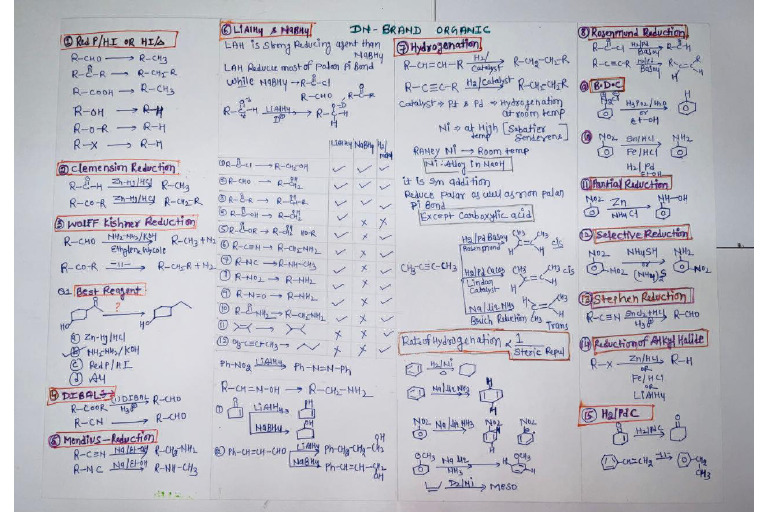 DN-BRAND ORGANIC
① Red P/HI OR HI/Δ
R-CHO → R-CH3
R-C-R → R-CH2-R
R-COOH → R-CH3
R-OH → R-H
R-O-R → R-H
R-X → R-H
② Clemension Reduction
R-C-H Zn-Hg/HCl R-CH3
R-CO-R Zn-Hg/HCl R-CH2-R
③ WOLFF Kishner Reduction
R-CHO NH2-NH2/KOH R-CH3+N2
Ethylene Glycole
R-CO-R —11— R-CH2R+N2
Q1 Best Reagent
O
?
HO
HO
ⓐ Zn-Hg/HCl
ⓑ NH2-NH2/KOH
ⓒ Red P/HI
ⓓ All
④ DIBALH
R-COOR ①DIBAL R-CHO
H3O
R-CN → R-CHO
⑤ Mendius-Reduction
R-C≡N Na/Et-OH R-CH2-NH2
R-NC Na/Et-OH R-NH-CH3
⑥ LiAlH4 & NaBH4
LAH is Strong Reducing agent than
NaBH4
LAH Reduce most of Polar Pi Bond
while NaBH4 → R-C-Cl
R-CHO, R-C-R
R-C-H LiAlH4 R-C-H
LiAlH4 NaBH4 H2/
① R-C-Cl → R-CH2-OH
② R-CHO →
③ R-C-R →
④ R-C-OH →
⑤ R-C-OR →
⑥ R-CONH → R-CH2NH2
⑦ R-NC → R-NH-CH3
⑧ R-NO2 → R-NH2
⑨ R-N=O → R-NH2
⑩ R-C-NH2 → R-CH2NH2
⑪
⑫
Ph-NO2 LiAlH4 Ph-N=N-Ph
R-CH=N-OH → R-CH2-NH2
① LiAlH4
NaBH4
② Ph-CH=CH-CHO LiAlH4 Ph-CH2-CH2-CH2
OH
NaBH4 Ph-CH=CH-CH2
OH
⑦ Hydrogenation
R-CH=CH-R H2/ R-CH2-CH2-R
Catalyst
R-C≡C-R H2/Catalyst R-CH2CH2R
Catalyst → Pt & Pd → Hydrogenation
at room temp
Ni → at High temp [Sabatier Senderens]
RANEY Ni → Room temp
Ni-Alloy in NaOH
it is Syn addition
Reduce Polar as well as non polar
Pi Bond
Except Carboxylic acid
CH3-C≡C-CH3
H2/Pd BaSO4
Rosenmund
cis
H2/Pd CaCO3
Lindlar
Catalyst
cis
Na/Liq NH3
Birch Reduction
Trans
Rate of Hydrogenation ∝ 1
Steric Repul
H2/Ni
Na/Liq NH3
NO2 Na/Liq NH3 NO2 NO2
OCH3 Na Liq OCH3
NH3
D2/Ni → Meso
⑧ Rosenmund Reduction
R-C-Cl H2/Pd R-C-H
BaSO4
R-C≡C-R H2/Pd
BaSO4
⑨ B·D·C
H3PO2/H2O
or
Et-OH
⑩ NO2 Sn/HCl NH2
Fe/HCl
H2/Pd
Et-OH
⑪ Partial Reduction
NO2 Zn NH-OH
NH4Cl
⑫ Selective Reduction
NO2 NH4SH NH2
NO2 or NO2
(NH4)2S
⑬ Stephen Reduction
R-C≡N SnCl2+HCl R-CHO
H3O
⑭ Reduction of Alkyl Halide
R-X Zn/HCl R-H
OR
Fe/HCl
OR
LiAlH4
⑮ H2/PdC
H2/PdC
CH=CH2 CH2
CH3